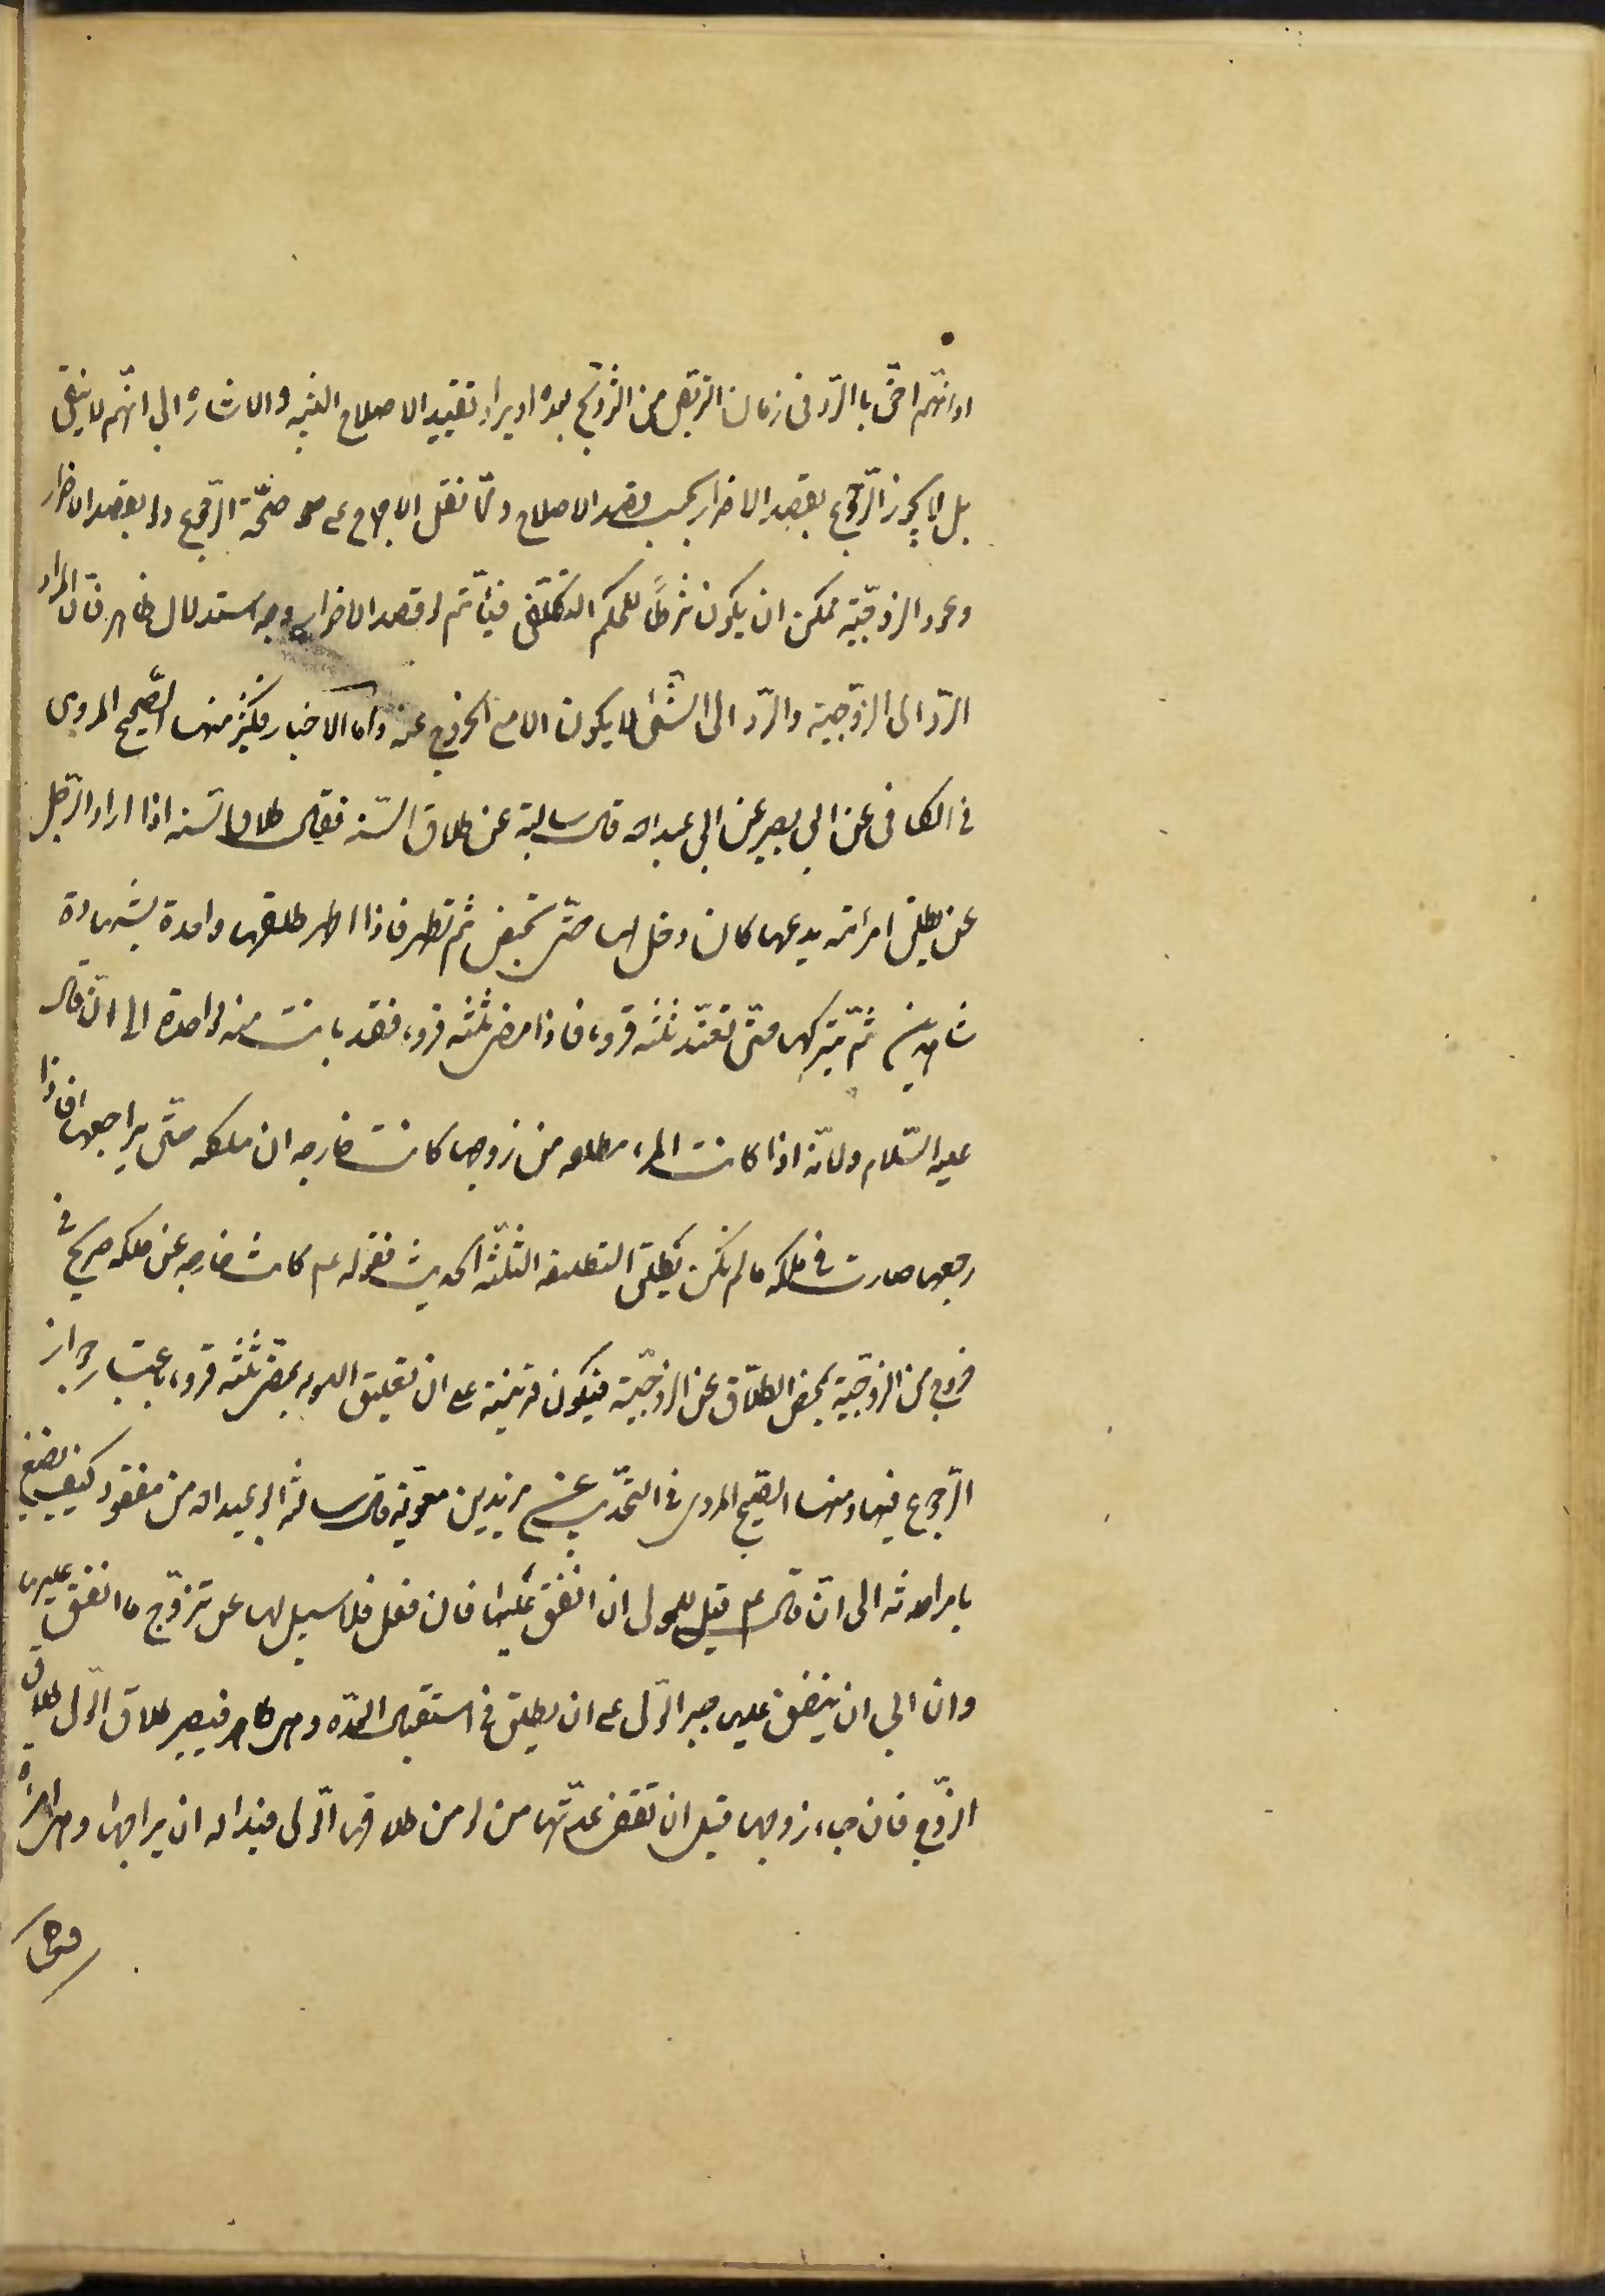 او انهّم احقّ باالرّد فى زمان التربّص من التزوّج بعده او يراد تقييد الاصلاح التنبيه والاشاره الى انهّم لا ينبغى
بل لا يجوز الرّجوع بقصد الاضرار يجب قصد الاصلاح ولمّا نقل الاجماع على صحّة الرّجوع ولو بقصد الاضرار
وعود الزوجّية يمكن ان يكون شرطاً للحكم التكلّيفى فيأثم لو قصد الاضرار وجه استدلال ظاهر فان المراد
الرّد الى الزوّجية والرّد الى الشّئ لا يكون الا مع الخروج عنه واما الاخبار فكثيرٌ منها الصّحيح المروى
فى الكافى عن ابى بصير عن ابى عبد الله قال سالته عن طلاق السّنه فقال طلاق السّنه اذا اراد الرّجل
عن يطلق امرئته يدعها كان دخل بها حتّى تحيض ثم تطهر فاذا اطهر طلقها واحدة بشهادة
شاهدين ثّم يتركها حتّى تعتّد ثلثه قروء فاذا مضى ثلثه قروء فقد بانت منه واحدة الى انّ قال
عليه السّلام ولانّه اذا كانت المرء مطلقه من زوجها كانت خارجه ان ملكه حتّى يراجعها فاذا
رجعها صارت فى ملكه ما لم تكن يطلق التطليقه الثلّثه الحديث فقوله ع كانت خارجه عن ملكه صريح فى
خروج من الزوجّية بمحض الطلّاق عن الزوجّية فيكون قرينية على ان تعليق البينونه بمضى ثلثه قروء باعتبار جواز
الرّجوع فيها ومنها الصّحيح المروى فى التهّذيب عن بريد بن معوّيه قال سالته ابى عبد الله من مفقود كيف يصنع
بامراته الى انّ قال ع قيل للولى ان انفق عليها فان فعل فلا سبيل لها عن تزوّج ما انفق عليها
وان ابى ان ينفق عليها جبر الوّلى على ان يطلق فى استقبال العدّه وهى طاهر فيصير طلاق الوّلى طلاق
الزوّج فان جاء زوجها قبل ان تقضى عدّتها من يومن طلاقها الوّلى فبدا له ان يراجعها وهى امرئه